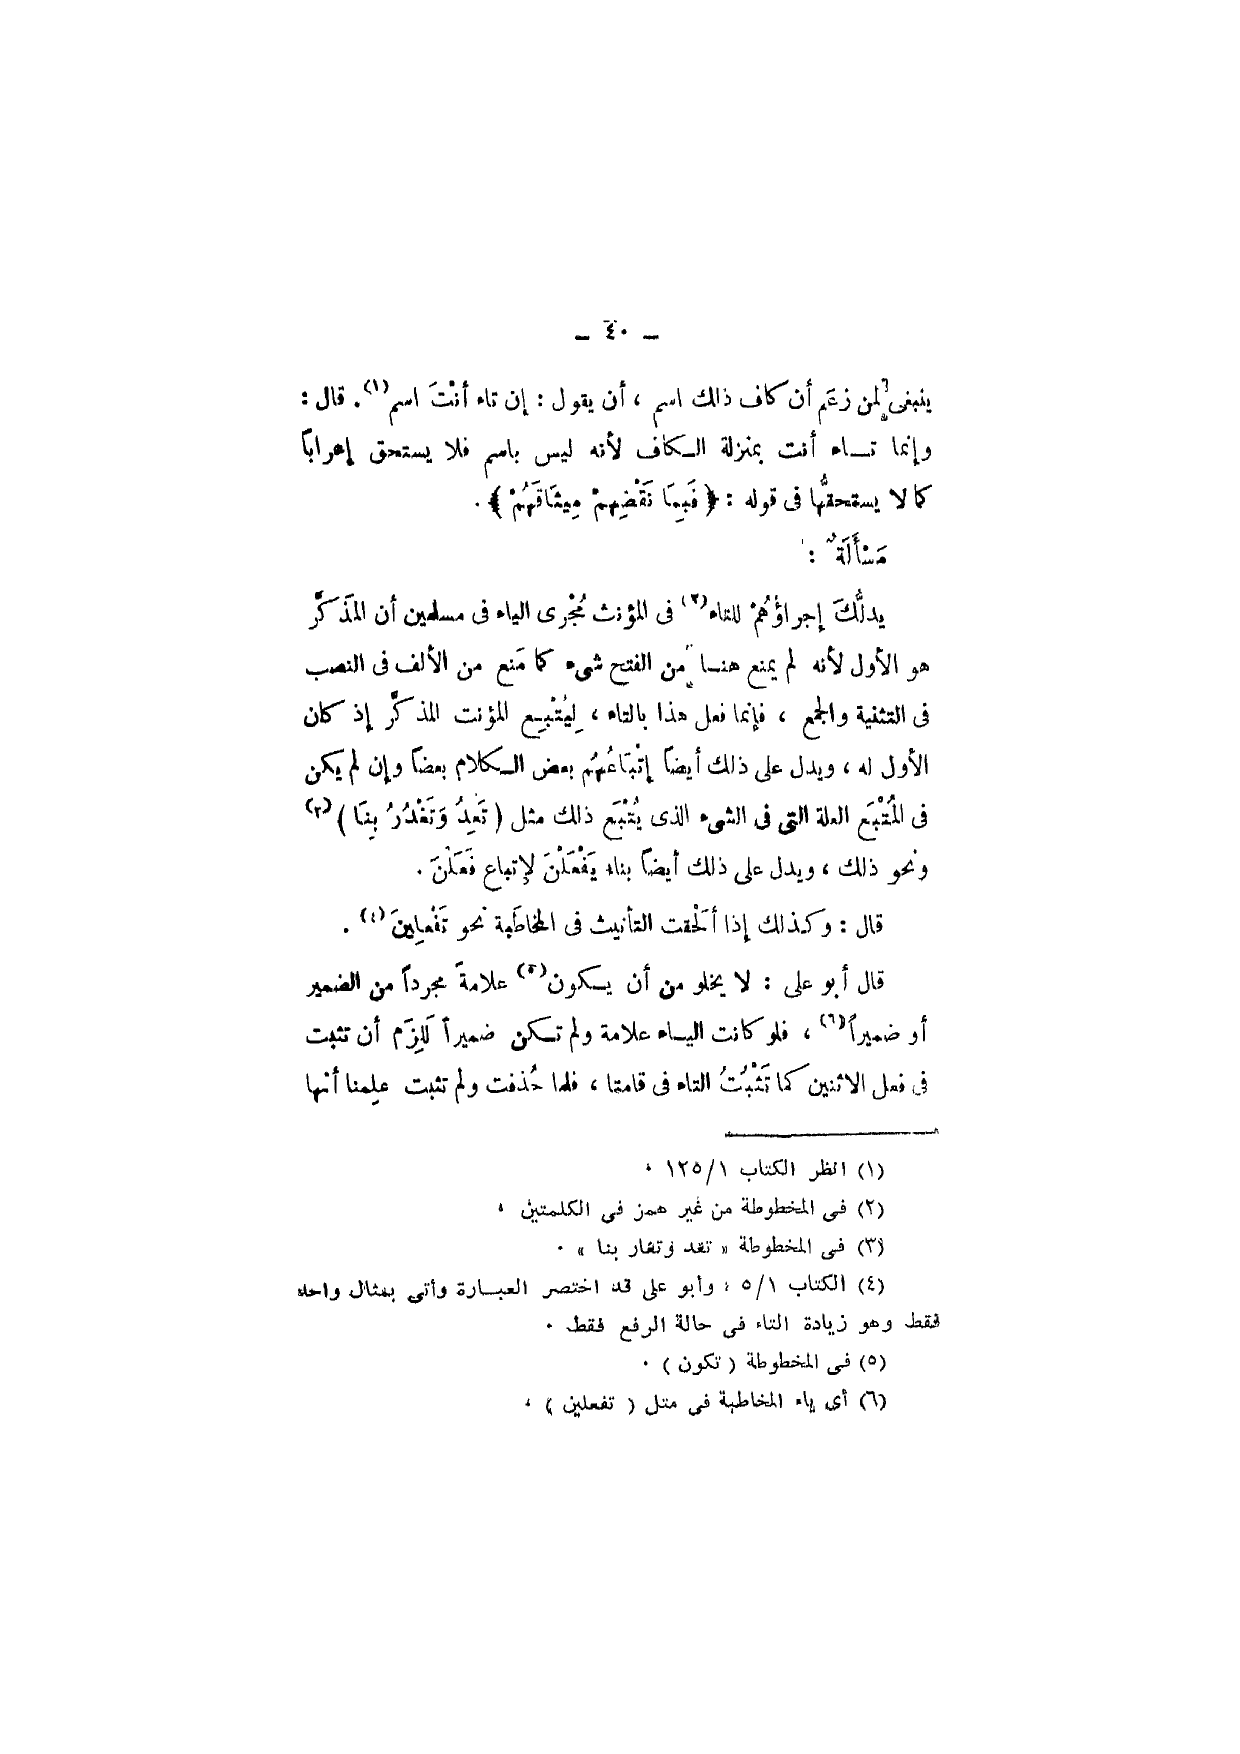 — ٤٠ —
ينبغى لمن زعَم أن كاف ذالك اسم ، أن يقول : إن تاء أنْتَ اسم(١). قال :
وإنما تــاء أنت بمنزلة الـكاف لأنه ليس باسم فلا يستحق إعراباً
كما لا يستحقُّها فى قوله : ﴿ فَبِمَا نَقْضِهِمْ مِيثَاقَهُمْ ﴾ .
مَسْأَلَةٌ :
يدلُّكَ إجراؤُهُمْ للتاء(٢) فى المؤنث مُجْرى الياء فى مسلمين أن المَذكَّر
هو الأول لأنه لم يمنع هنـا من الفتح شىء كما مَنع من الألف فى النصب
فى التثنية والجمع ، فإنما فعل هذا بالتاء ، لِيُتْبِـع المؤنث المذكَّر إذ كان
الأول له ، ويدل على ذلك أيضاً إتْبَاعُهُم بعض الـكلام بعضاً وإن لم يكن
فى المُتْبَع العلة التى فى الشىء الذى يُتْبَع ذلك مثل ( تَعِدُ وَتَغْدُرُ بِنَا )(٣)
ونحو ذلك ، ويدل على ذلك أيضاً بناء يَفْعَلْنَ لإتباع فَعَلْنَ .
قال : وكذلك إذا أَلْحَقت التأنيث فى المخاطَبة نحو تَفْعلِينَ(٤) .
قال أبو على : لا يخلو من أن يـكون(٥) علامةً مجرداً من الضمير
أو ضميراً(٦) ، فلو كانت اليـاء علامة ولم تـكن ضميراً لَلِزَم أن تثبت
فى فعل الاثنين كما تَثْبُتُ التاء فى قامتا ، فلما حُذفت ولم تثبت علِمنا أنها
(١) انظر الكتاب ١/١٢٥ .
(٢) فى المخطوطة من غير همز فى الكلمتين .
(٣) فى المخطوطة « تعد وتغار بنا » .
(٤) الكتاب ١/٥ ، وأبو على قد اختصر العبـارة وأتى بمثال واحد
فقط وهو زيادة التاء فى حالة الرفع فقط .
(٥) فى المخطوطة ( تكون ) .
(٦) أى ياء المخاطبة فى مثل ( تفعلين ) .